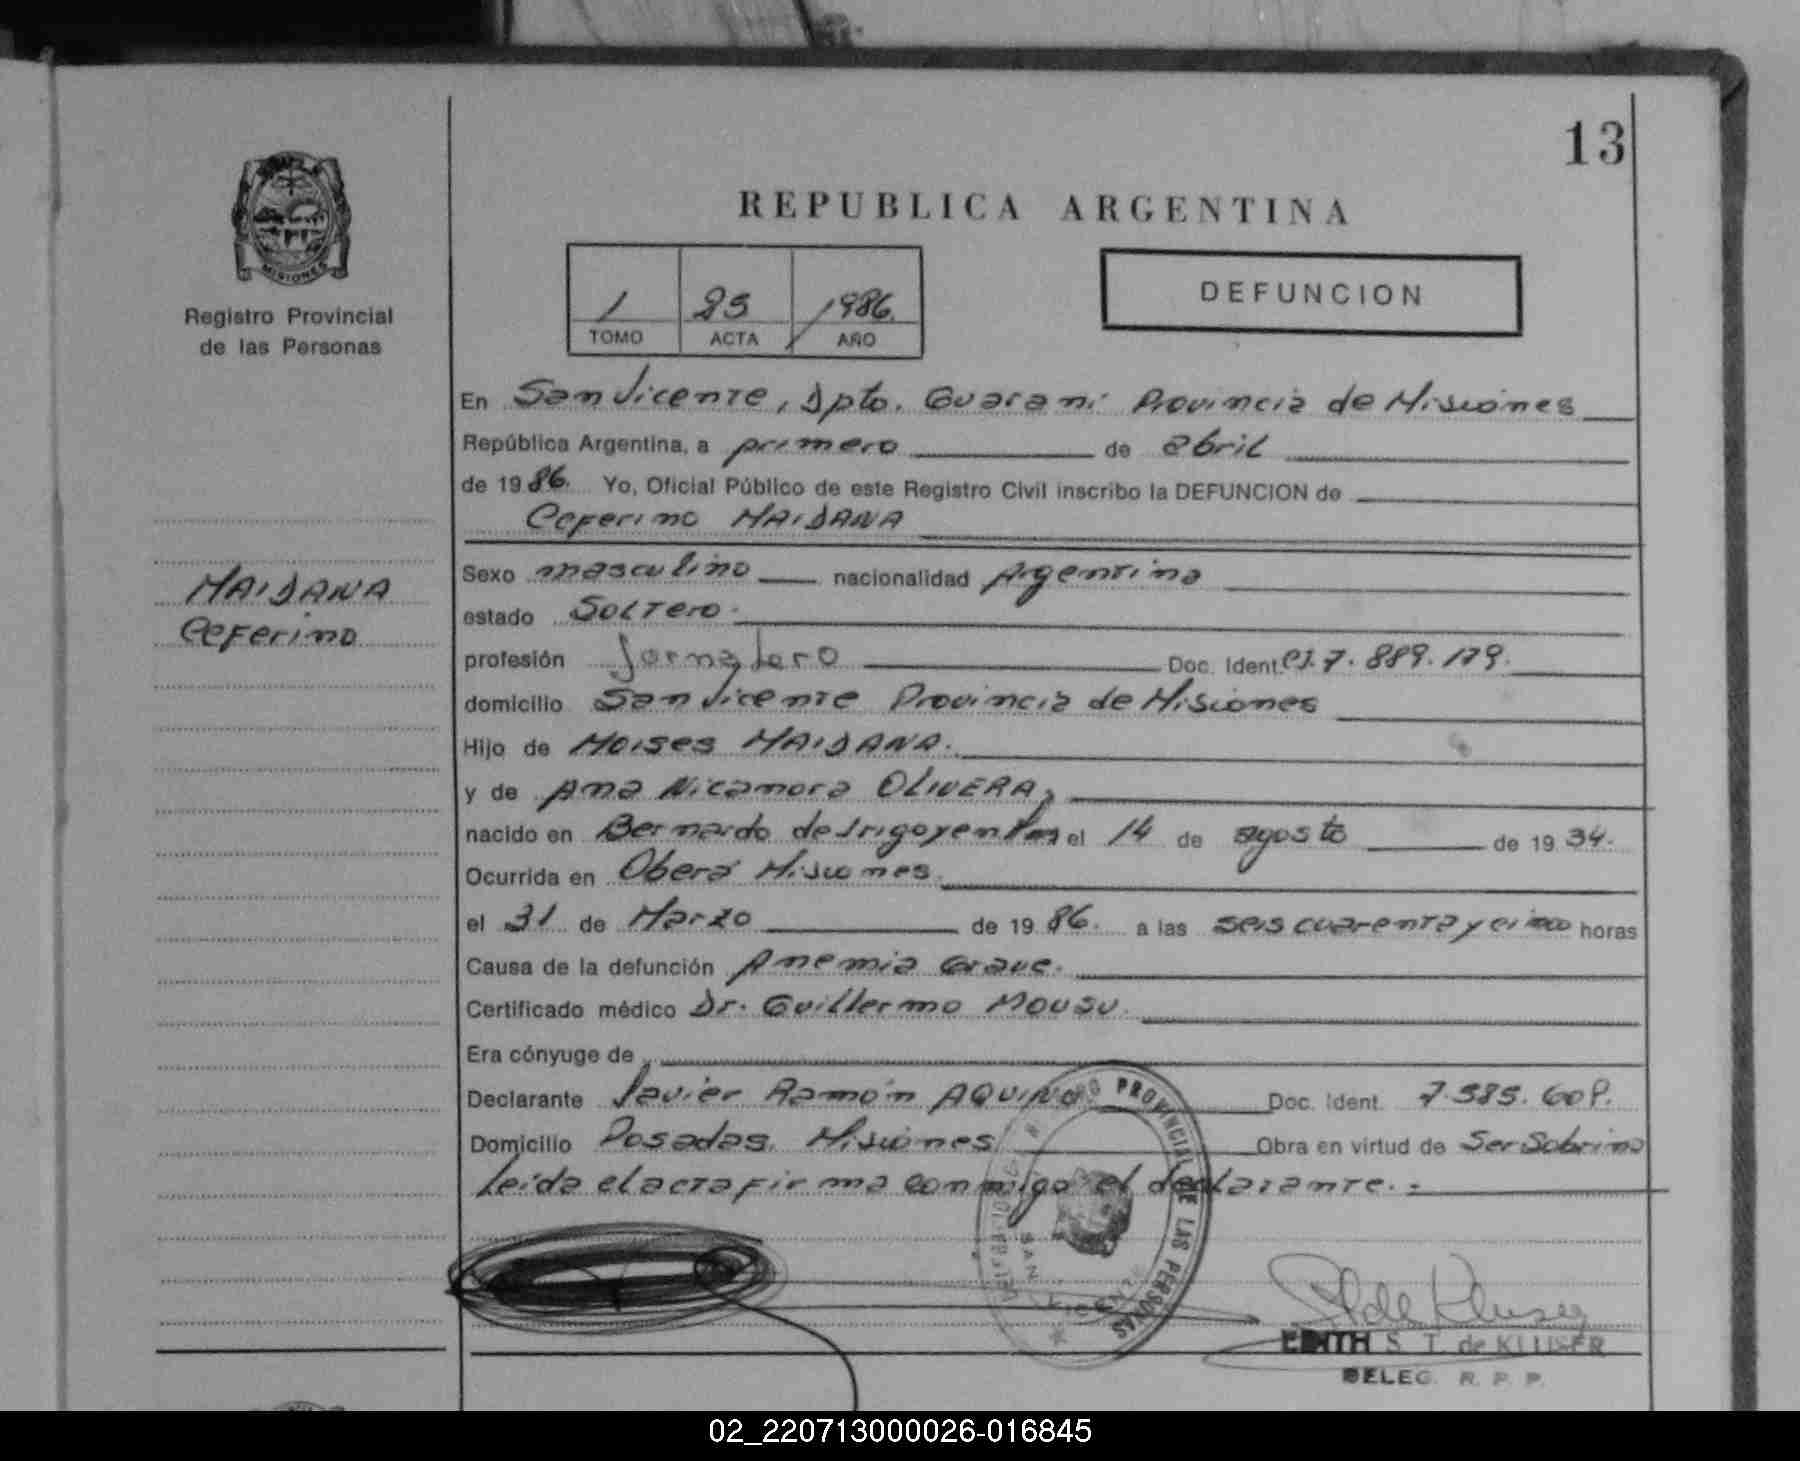 13
REPUBLICA ARGENTINA
MISIONES
Registro Provincial
de las Personas
1 25 1986.
TOMO ACTA AÑO
DEFUNCION
En San Vicente, Dpto. Guarani Provincia de Misiones
República Argentina, a primero de abril
de 1986. Yo, Oficial Público de este Registro Civil inscribo la DEFUNCION de
Ceferino MAIDANA
MAIDANA
Ceferino
Sexo masculino nacionalidad Argentina
estado Soltero.
profesión Jornalero Doc. Ident. CI. 7.889.179.
domicilio San Vicente Provincia de Misiones
Hijo de Moises MAIDANA.
y de Ana Nicanora OLIVERA,
nacido en Bernardo de Irigoyen el 14 de agosto de 1934.
Ocurrida en Oberá Misiones.
el 31 de Marzo de 1986. a las seis cuarenta y cinco horas
Causa de la defunción Anemia Grave.
Certificado médico Dr. Guillermo
Era cónyuge de
Declarante Javier Ramón AQUINO Doc. Ident. 7.585.
Domicilio Posadas, Misiones Obra en virtud de Ser Sobrino
leida el acta firma conmigo el declarante.-
REGISTRO PROVINCIAL DE LAS PERSONAS
SAN VICENTE
EDITH S. T. de KLUSER
DELEG. R. P. P.
02_220713000026-016845